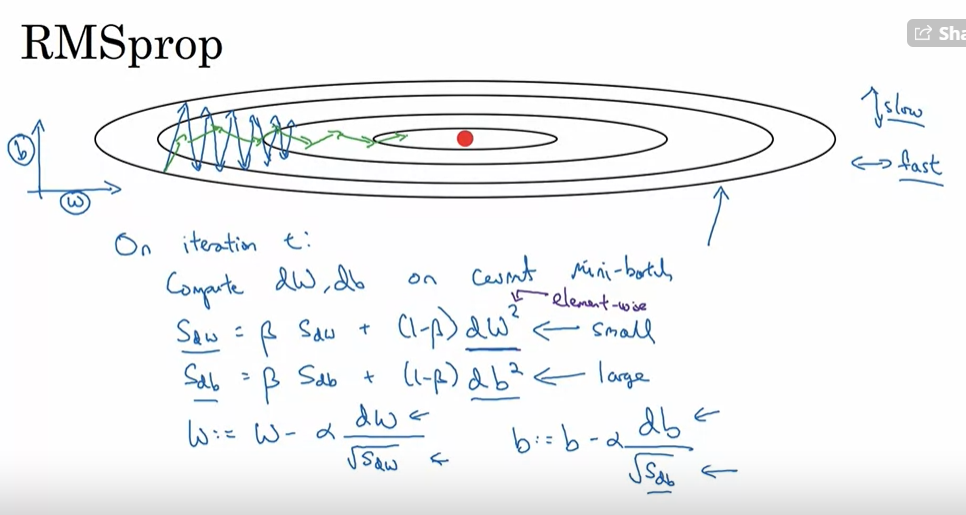 RMSprop
Sha
slow
b
fast
w
On iteration t:
Compute dW, db on current mini-batch
element-wise
S_dw = β S_dw + (1-β) dW² ← small
S_db = β S_db + (1-β) db² ← large
W := W - α dW/√S_dw ← b := b - α db/√S_db ←